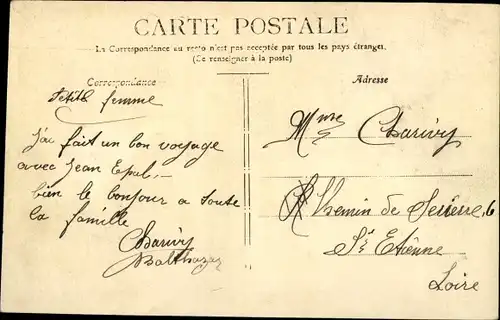 CARTE POSTALE
La Correspondance au recto n'est pas acceptée par tous les pays étranges.
(Se renseigner à la poste)
Correspondance
Adresse
Petite femme
J'ai fait un bon voyage
avec Jean
bien le bonjour a toute
la famille
Charivy
Balthazar
Mme Charivy
Chemin de 6
St Etienne
Loire